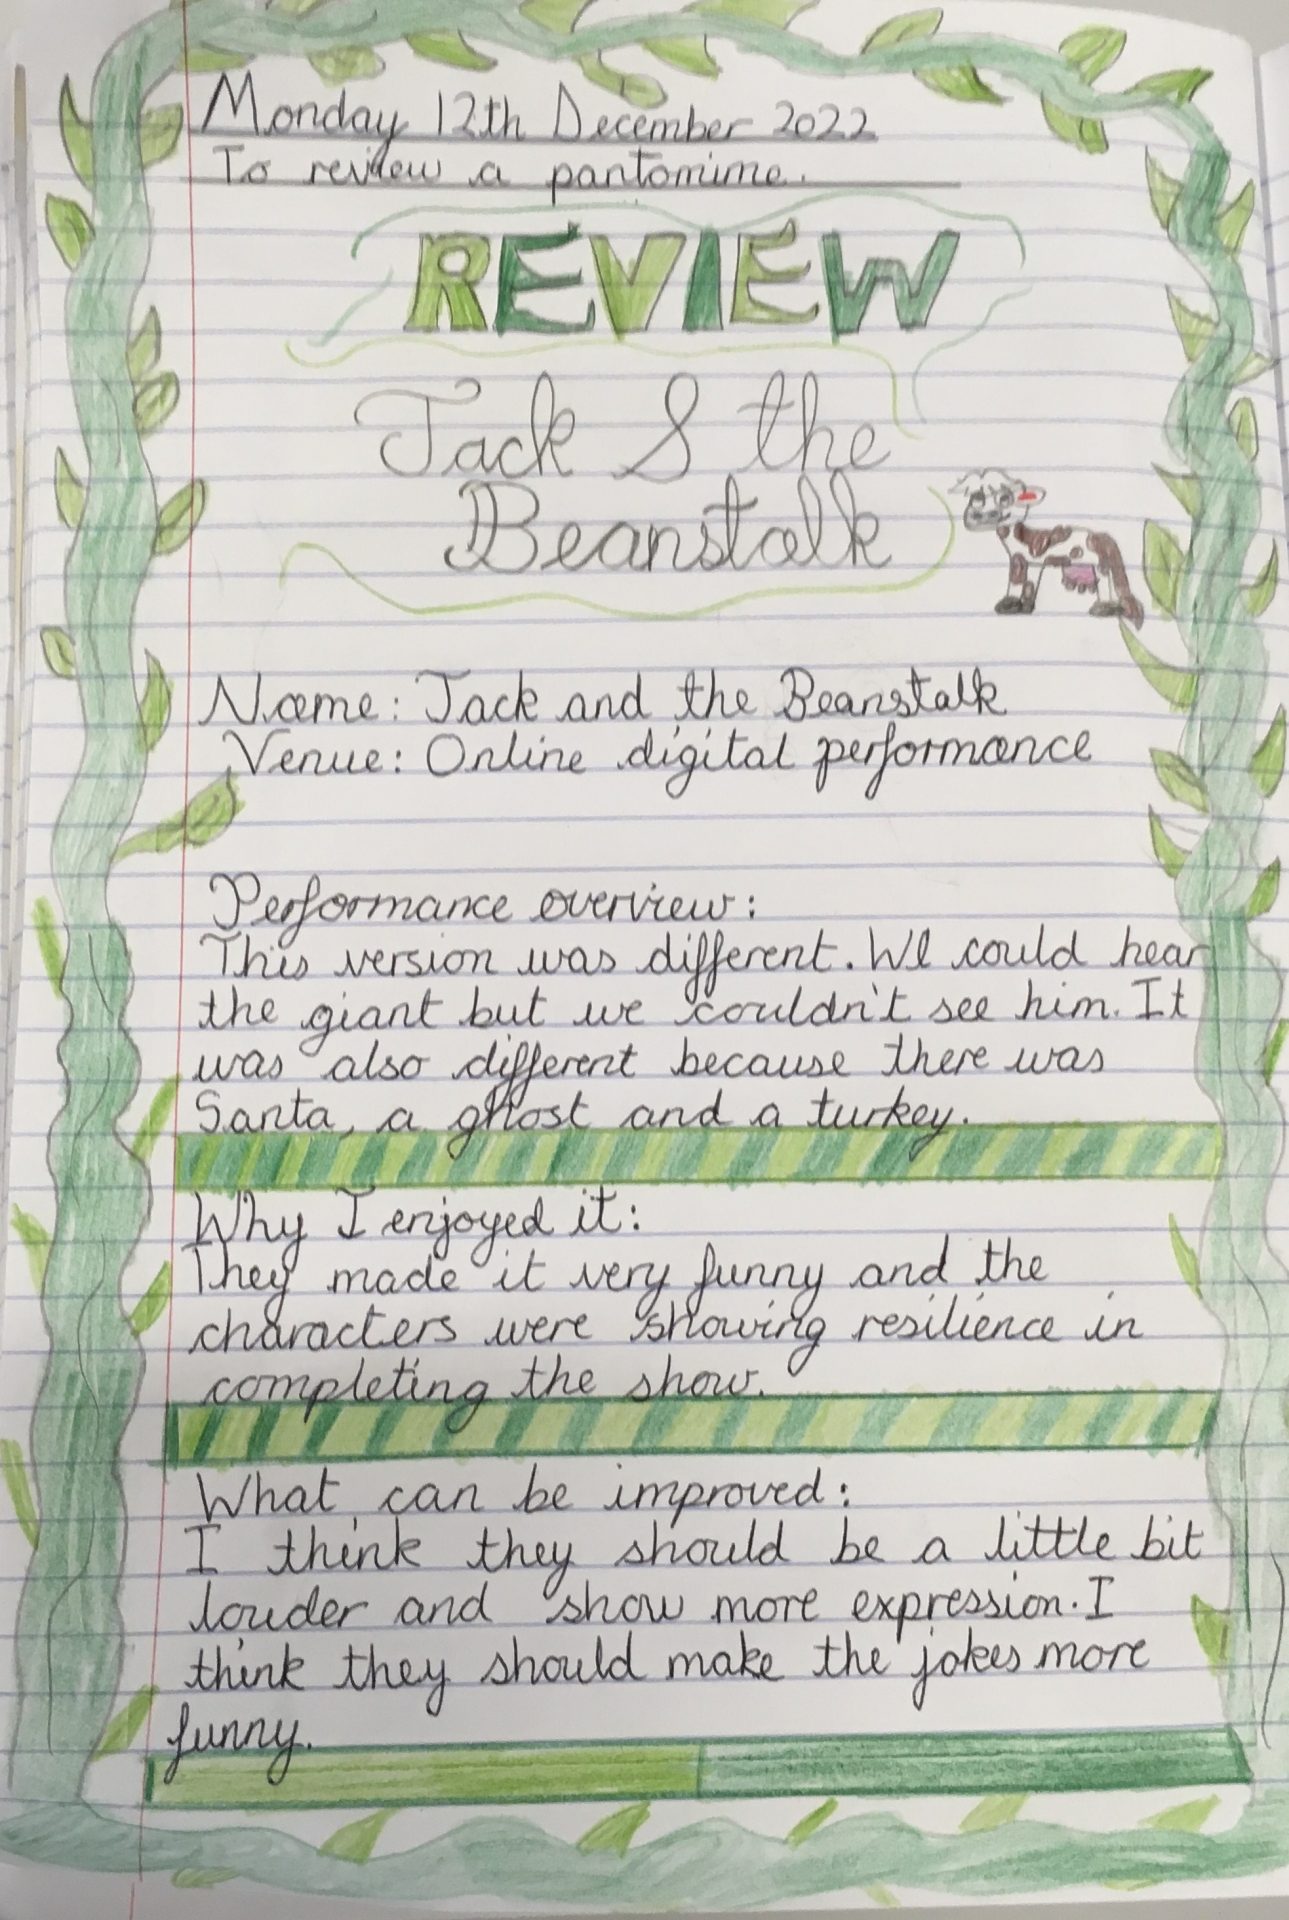 Monday 12th December 2022
To review a pantomime.
REVIEW
Jack & the
Beanstalk
Name: Jack and the Beanstalk
Venue: Online digital performance
Performance overview:
This version was different. We could hear
the giant but we couldn't see him. It
was also different because there was
Santa, a ghost and a turkey.
Why I enjoyed it:
They made it very funny and the
characters were showing resilience in
completing the show.
What can be improved:
I think they should be a little bit
louder and show more expression. I
think they should make the jokes more
funny.